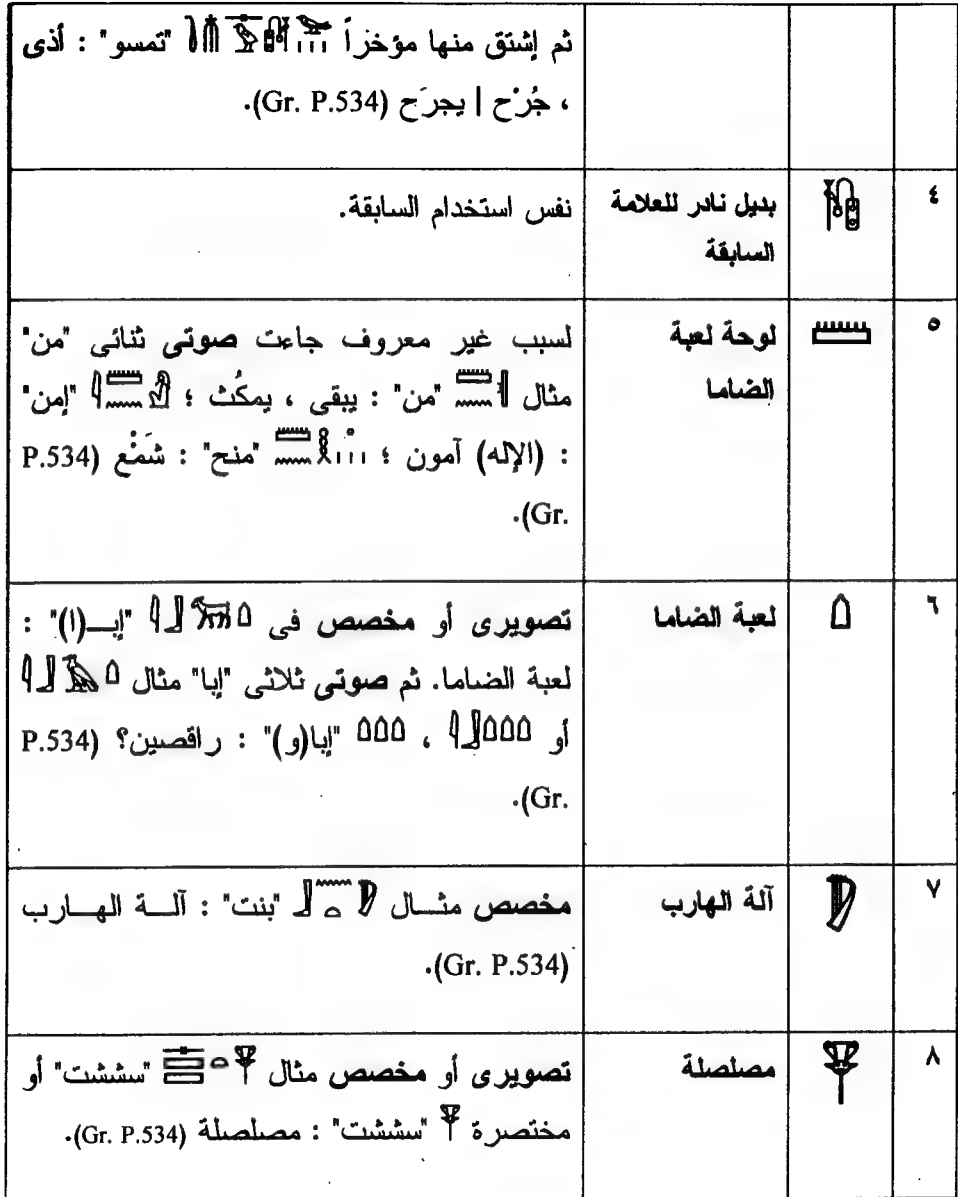 ثم إشتق منها مؤخزاً "تمسو" : أذى
، جُرْح | يجرَح (Gr. P.534).
٤ بديل نادر للعلامة السابقة نفس استخدام السابقة.
٥ لوحة لعبة الضاما لسبب غير معروف جاءت صوتى ثنائى "من"
مثال "من" : يبقى ، يمكُث ؛ "إمن"
: (الإله) آمون ؛ "منح" : شَمْع (P.534
Gr.).
٦ لعبة الضاما تصويرى أو مخصص فى "إبــ(ا)" :
لعبة الضاما. ثم صوتى ثلاثى "إبا" مثال
أو ، "إبا(و)" : راقصين؟ (P.534
Gr.).
٧ آلة الهارب مخصص مثــال "بنت" : آلــة الهــارب
(Gr. P.534).
٨ مصلصلة تصويرى أو مخصص مثال "سششت" أو
مختصرة "سششت" : مصلصلة (Gr. P.534).